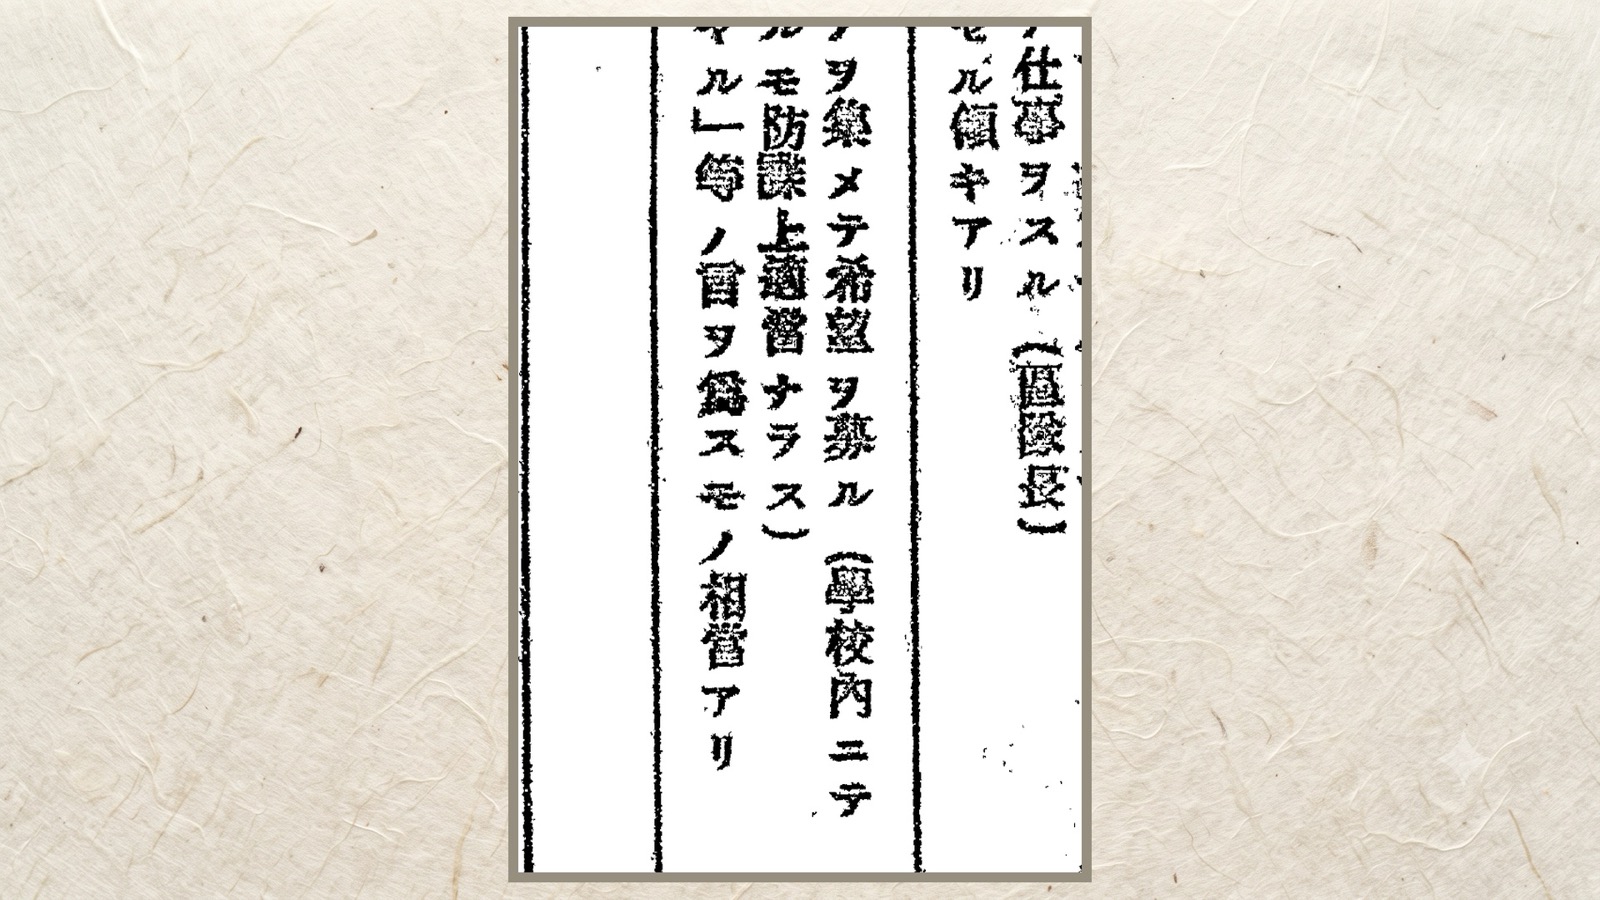 仕事ヲスル(區隊長)
ル傾キアリ
ヲ集メテ希望ヲ募ル(學校內ニテ
ルモ防諜上適當ナラス)
ル」等ノ言ヲ爲スモノ相當アリ